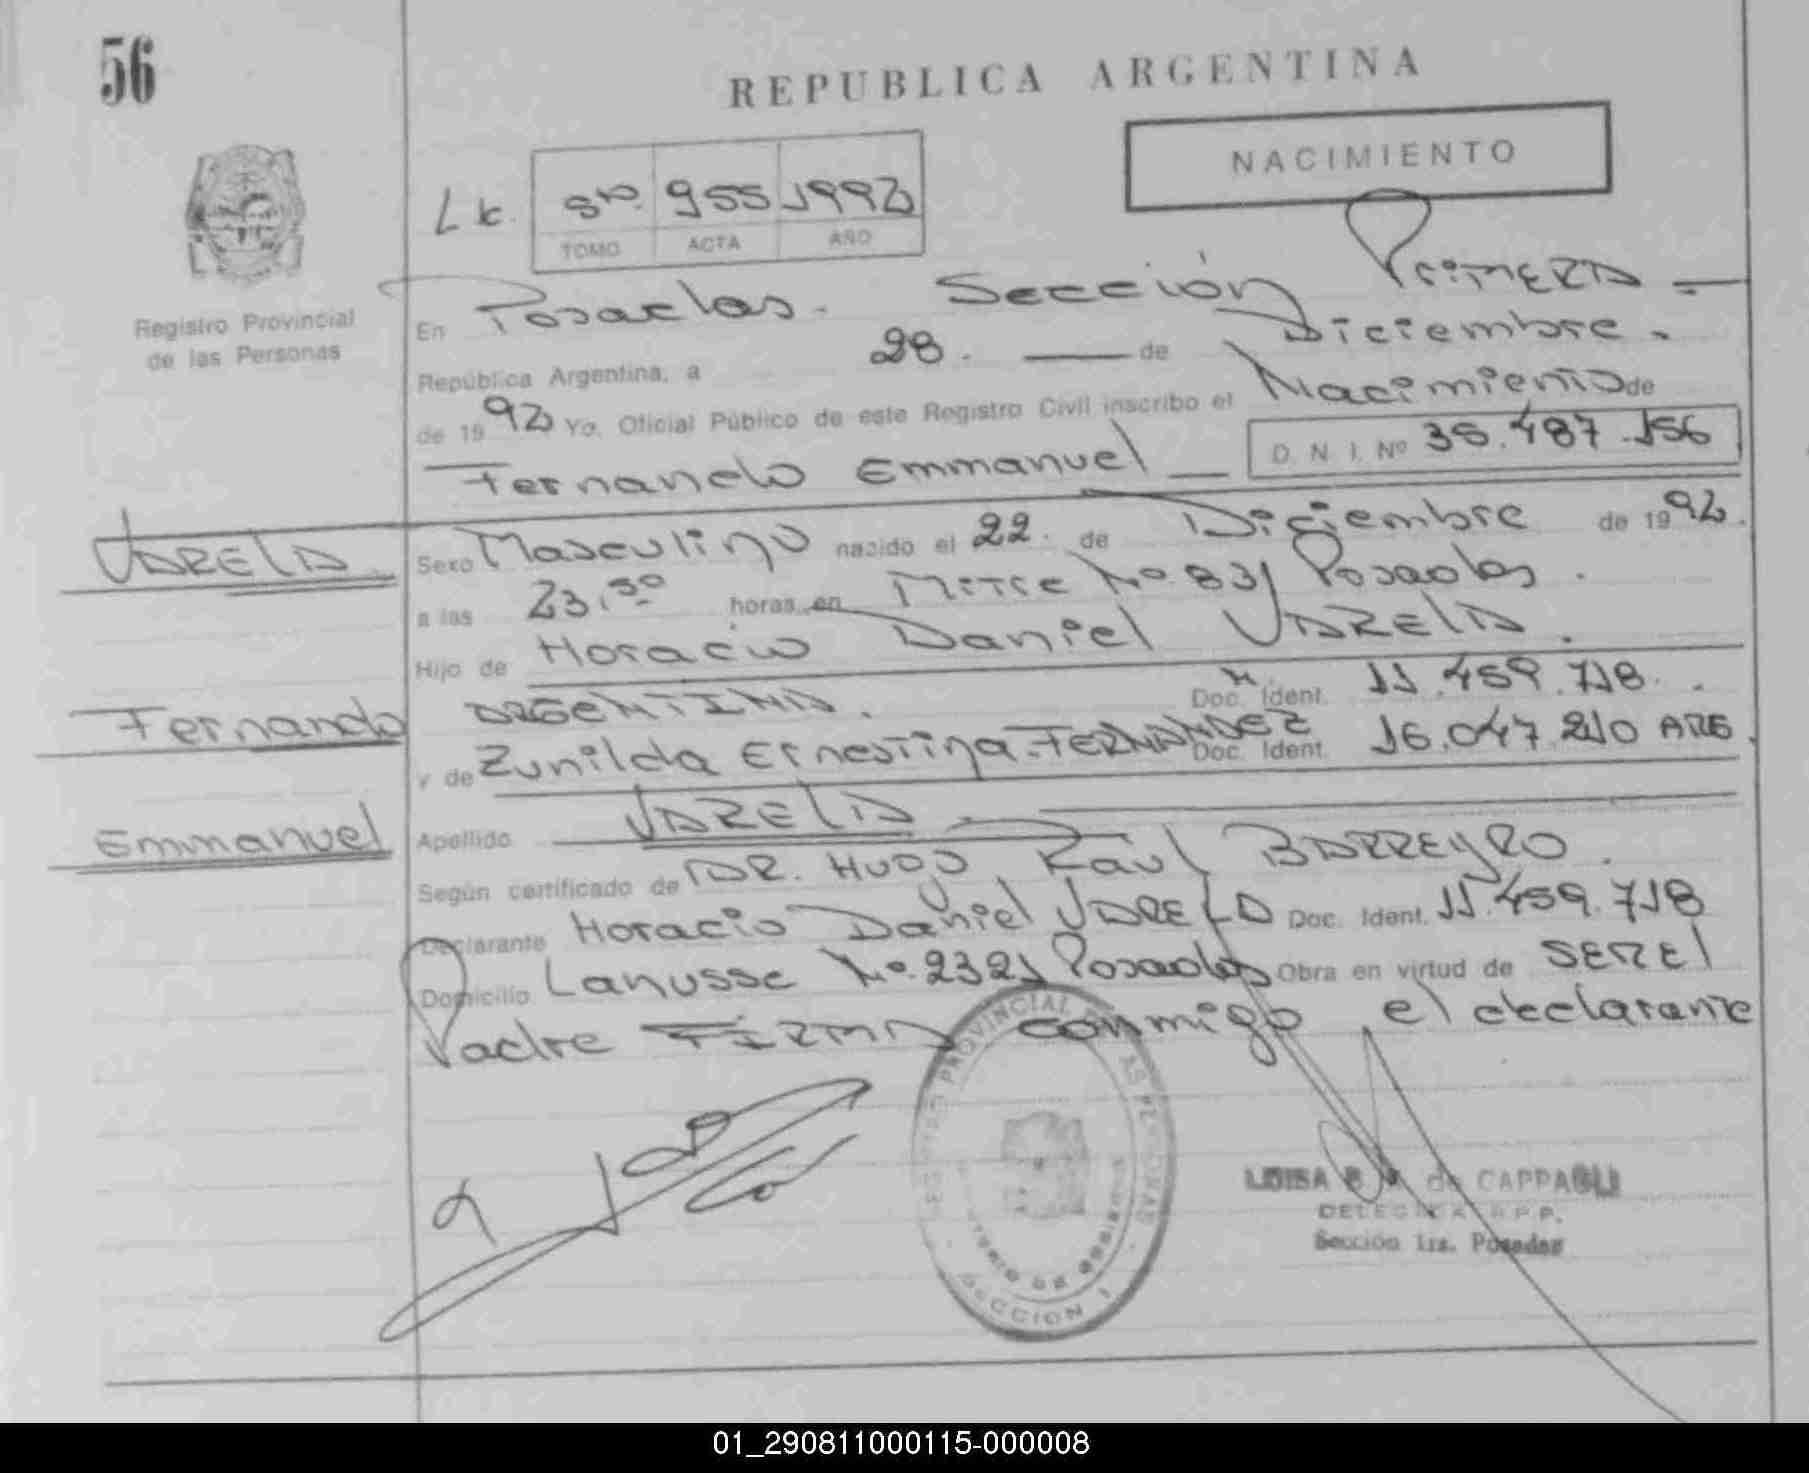 56
REPUBLICA ARGENTINA
NACIMIENTO
955 1992
TOMO ACTA AÑO
Registro Provincial
de las Personas
En Posadas. Sección Primera
República Argentina, a 28. de Diciembre.
de 1992 Yo, Oficial Público de este Registro Civil inscribo el Nacimiento de
Fernando Emmanuel D. N. I. Nº 36.487.156
VARELA
Sexo Masculino nacido el 22. de Diciembre de 1992.
a las 23,30 horas en Mitre Nº 831 Posadas.
Hijo de Horacio Daniel VARELA.
Fernando
ARGENTINA. Doc. Ident. 11.459.718.
y de Zunilda Ernestina FERNANDEZ Doc. Ident. 16.047.210 ARG.
Emmanuel
Apellido VARELA
Según certificado de DR. HUGO Raúl BARREYRO.
Declarante Horacio Daniel VARELA Doc. Ident. 11.459.718
Domicilio Lanusse Nº 2321 Posadas Obra en virtud de SER El
Padre FIRMA conmigo el declarante
REGISTRO PROVINCIAL DE LAS PERSONAS
SECCION 1
LUISA B. de CAPPAGLI
DELEGADA R.P.P.
Sección 1ra. Posadas
01_290811000115-000008